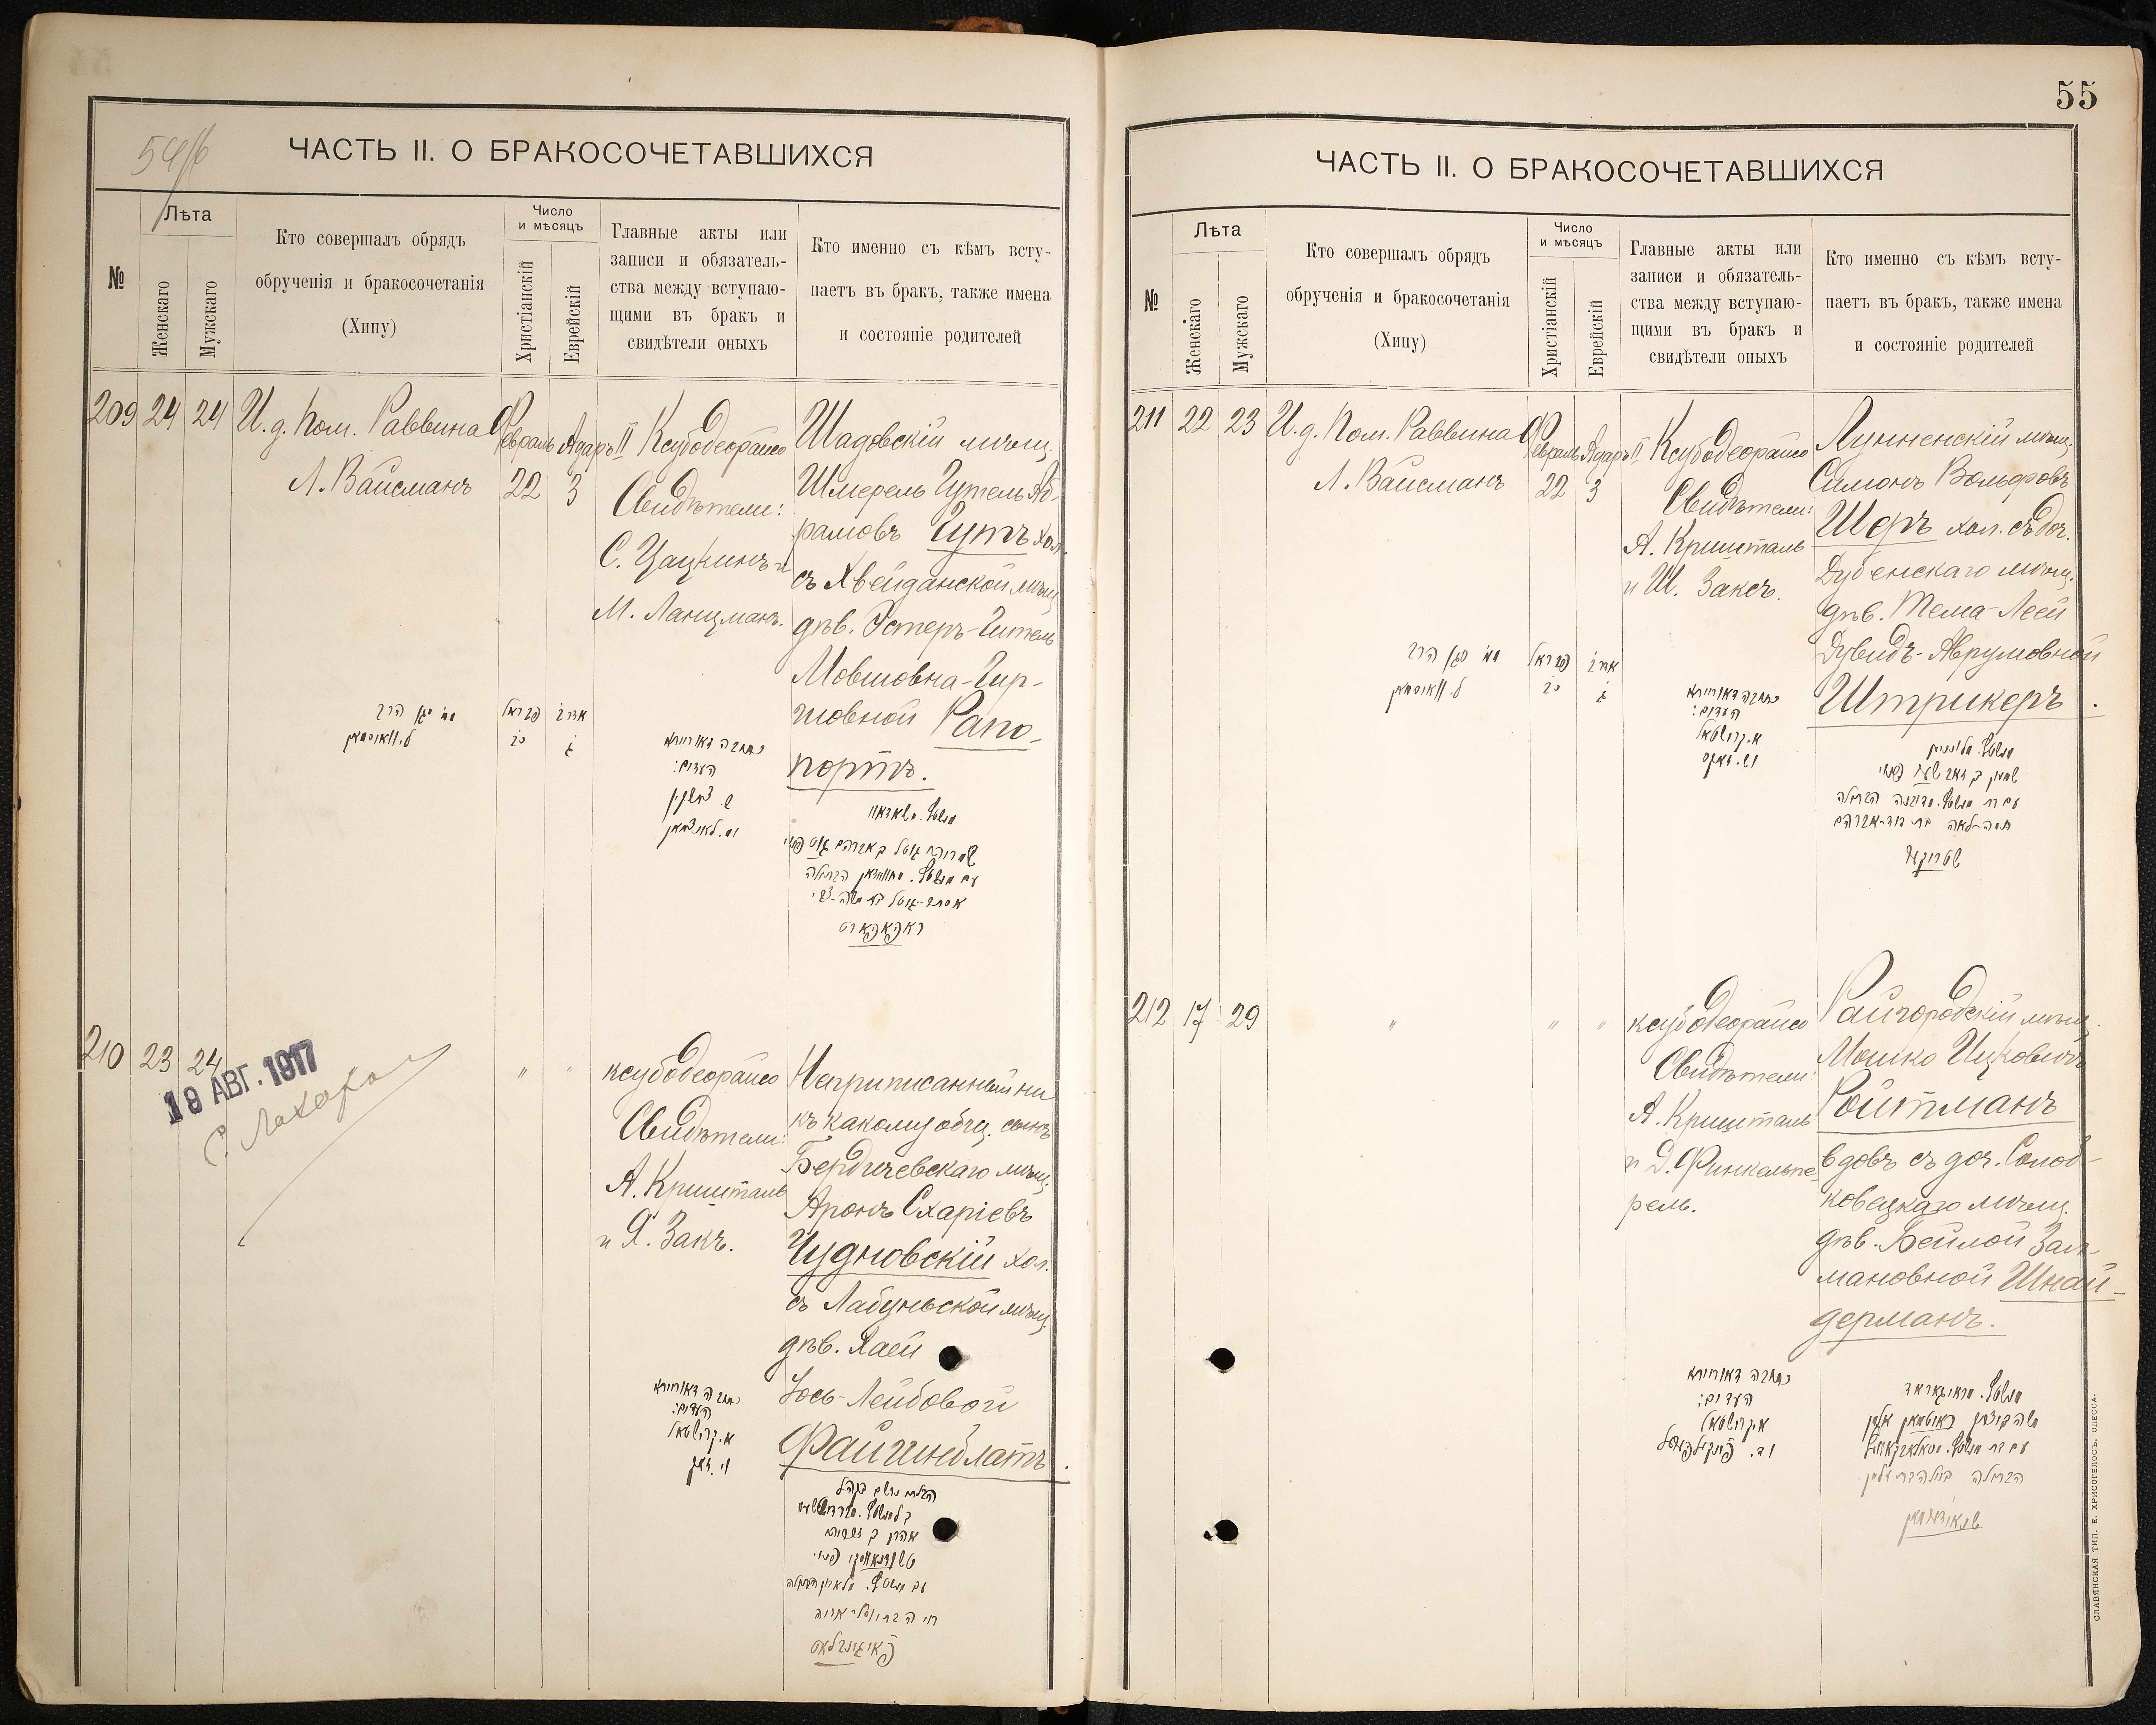 54/б
ЧАСТЬ II. О БРАКОСОЧЕТАВШИХСЯ
№
Лѣта
Женскаго
Мужскаго
Кто совершалъ обрядъ
обрученія и бракосочетанія
(Хипу)
Число
и мѣсяцъ
Христіанскій
Еврейскій
Главные акты или
записи и обязатель-
ства между вступаю-
щими въ бракъ и
свидѣтели оныхъ
Кто именно съ кѣмъ всту-
паетъ въ бракъ, также имена
и состояніе родителей
209 24 24
И. д. Пом. Раввина
Л. Вайсманъ
Февраль
22
Адаръ II
3
Ксубодеорайсо
Свидѣтели:
С. Цацкинъ и
М. Ланцманъ.
Шадовскій мѣщ.
Шмерель Гутель Аб-
рамовъ Гутъ хол.
съ Хвейданской мѣщ.
дѣв. Эстеръ-Гитель
Мовшовна-Гир-
шовной Рапо-
портъ.
כתובה דאורייתא
העדים:
ראפאפארט
210 23 24
19 АВГ. 1917
" "
ксубодеорайсо
Свидѣтели:
А. Кришталь
и Я. Закъ.
Неприписанный ни
къ какому общ. сынъ
Бердичевскаго мѣщ.
Аронъ Схаріевъ
Чудновскій хол.
съ Лабуньской мѣщ.
дѣв. Хаей
Іось-Лейбовой
Файгинблатъ.
כתובה דאורייתא
העדים:
א. קרישטאל
55
ЧАСТЬ II. О БРАКОСОЧЕТАВШИХСЯ
№
Лѣта
Женскаго
Мужскаго
Кто совершалъ обрядъ
обрученія и бракосочетанія
(Хипу)
Число
и мѣсяцъ
Христіанскій
Еврейскій
Главные акты или
записи и обязатель-
ства между вступаю-
щими въ бракъ и
свидѣтели оныхъ
Кто именно съ кѣмъ всту-
паетъ въ бракъ, также имена
и состояніе родителей
211 22 23
И. д. Пом. Раввина
Л. Вайсманъ
Февраль
22
Адаръ II
3
Ксубодеорайсо
Свидѣтели:
А. Кришталь
и Ш. Заксъ.
Лунненскій мѣщ.
Симонъ Вольфовъ
Шеръ хол. съ доч.
Дубенскаго мѣщ.
дѣв. Тема-Леей
Дувидъ-Аврумовной
Штрикеръ.
כתובה דאורייתא
העדים:
א. קרישטאל
שטריקער
212 17 29
" " "
ксубодеорайсо
Свидѣтели:
А. Кришталь
и Д. Финкельпе-
рель.
Райгородскій мѣщ.
Мошко Ицковичъ
Ройтманъ
вдовъ съ доч. Солоб-
ковецкаго мѣщ.
дѣв. Бейлой Зал-
мановной Шнай-
дерманъ.
כתובה דאורייתא
העדים:
א. קרישטאל
שנאידערמאן
СЛАВЯНСКАЯ ТИП. Е. ХРИСОГЕЛОСЪ, ОДЕССА.